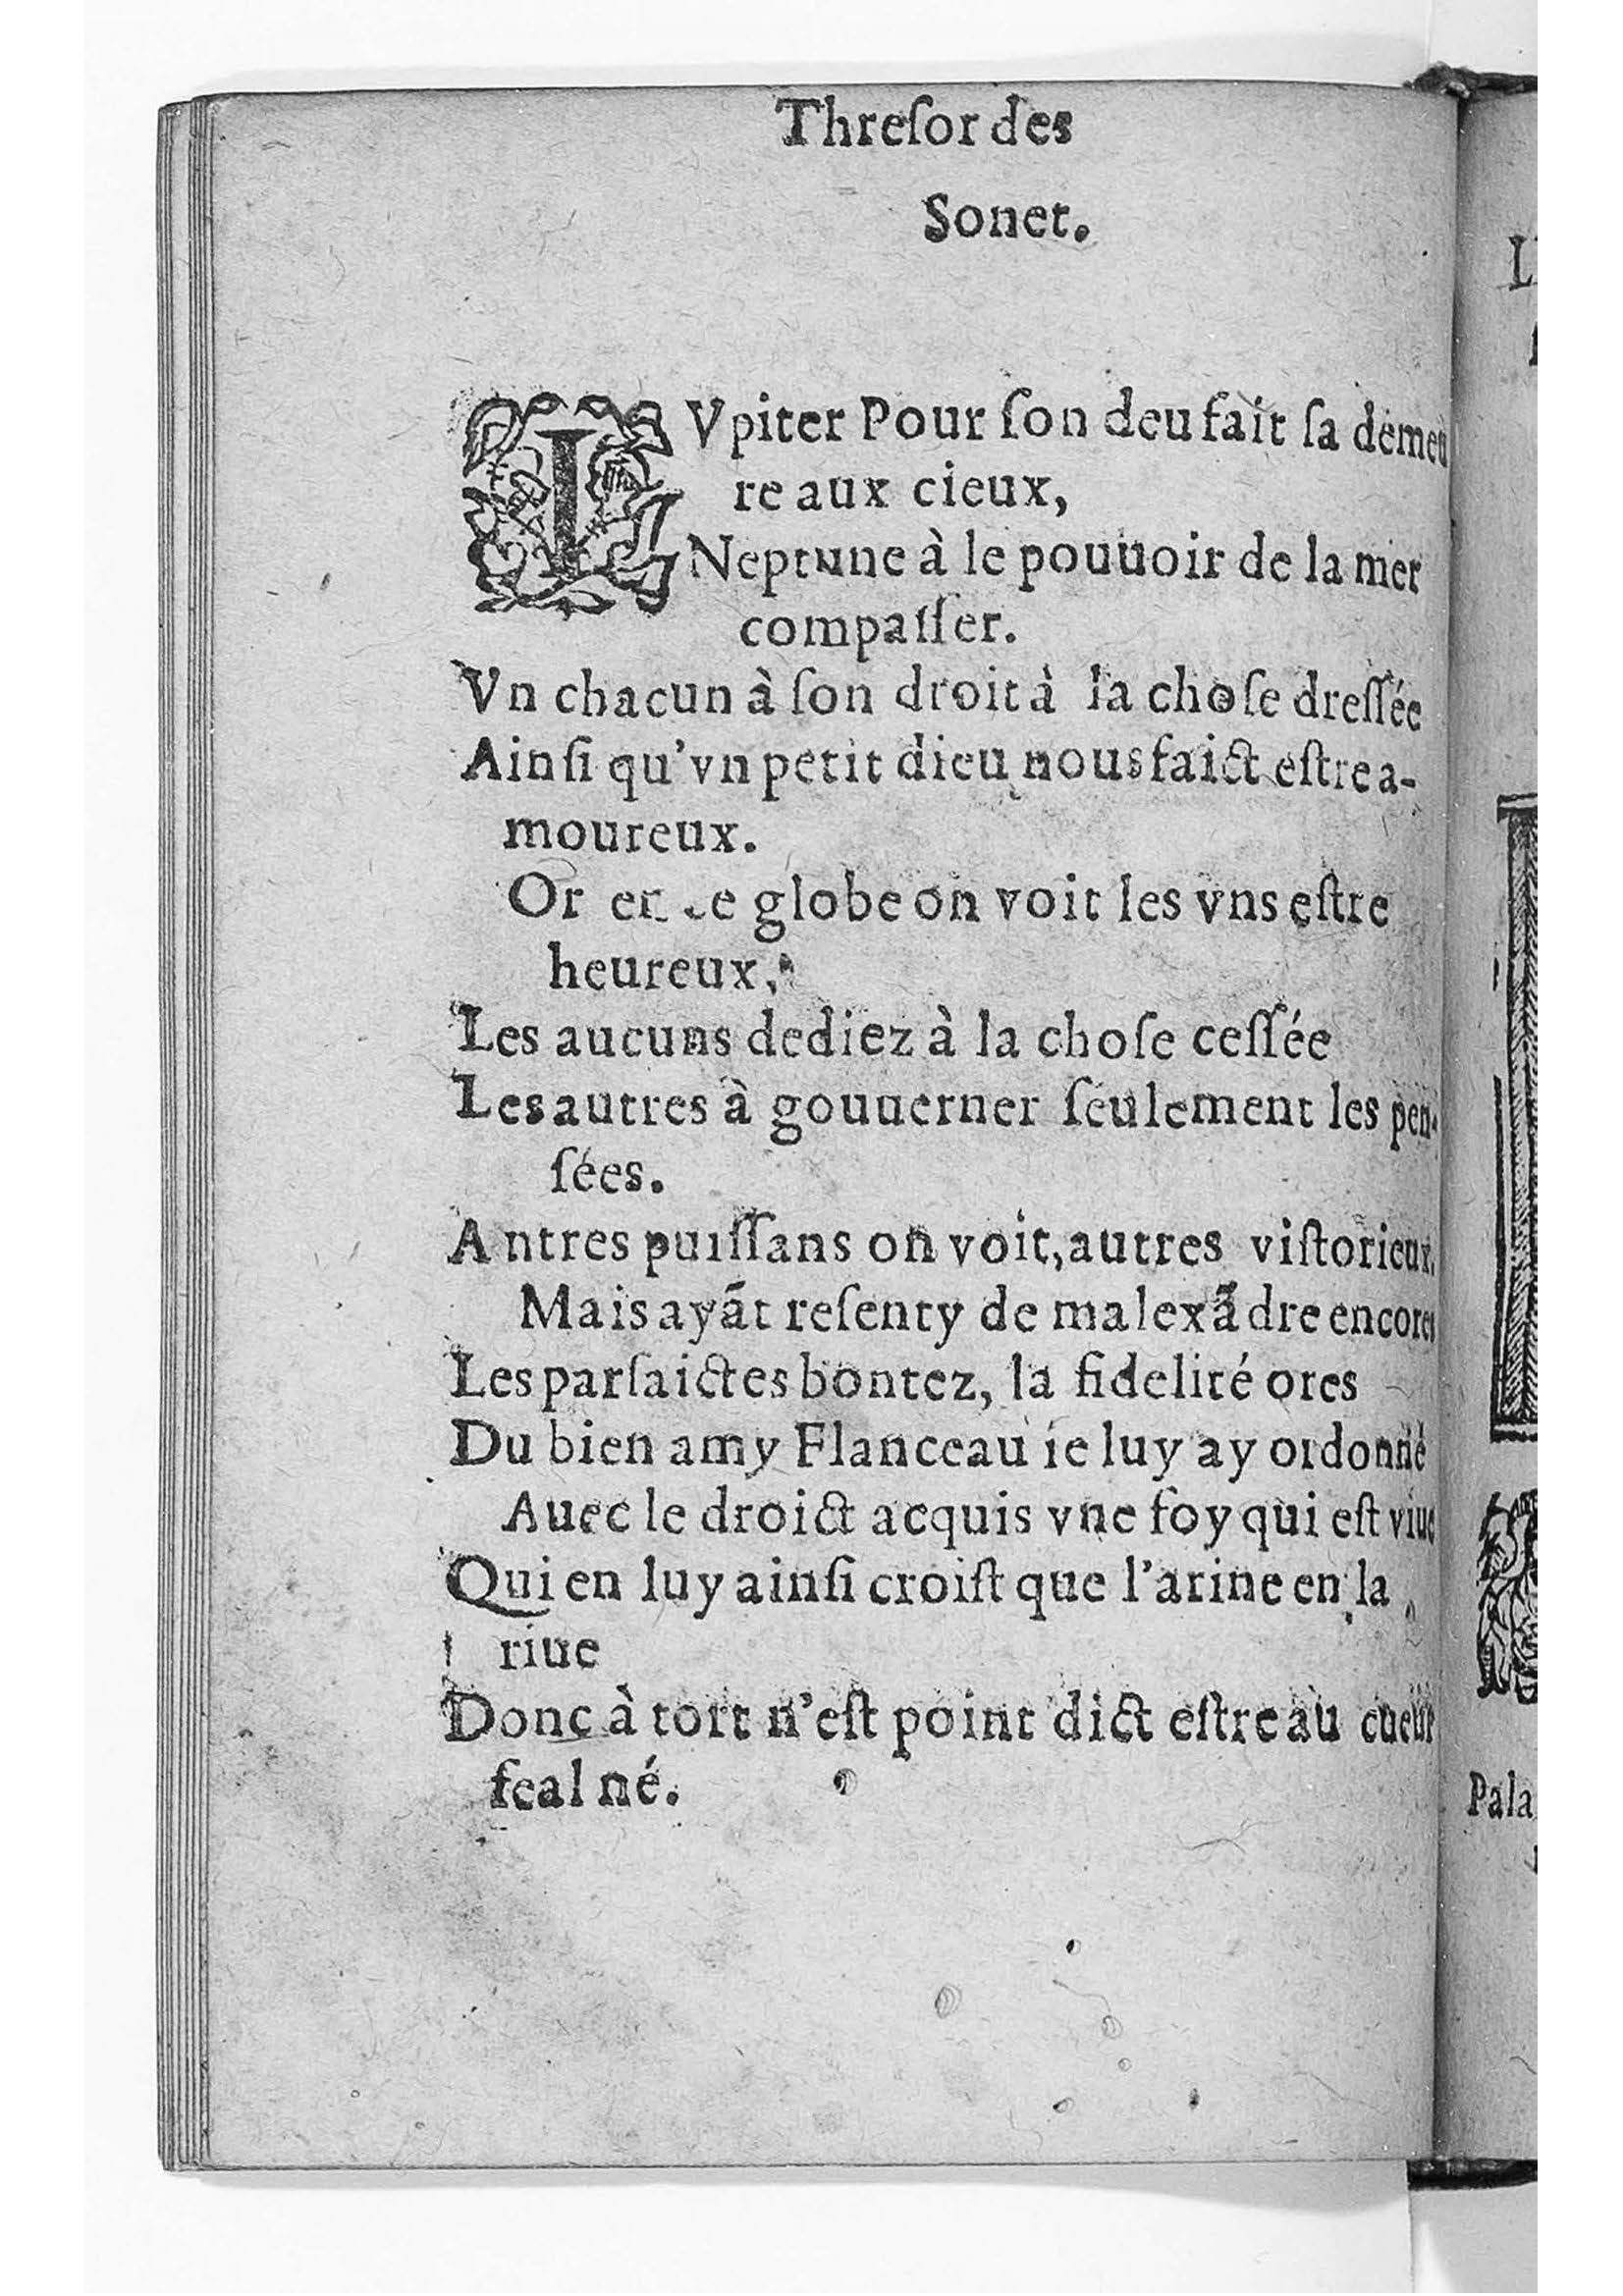 Threſor des
Sonet.
IVpiter Pour ſon deu fait ſa demeu
re aux cieux,
Neptune à le pouuoir de la mer
compaſſer.
Vn chacun à ſon droit à la choſe dreſſée
Ainſi qu'vn petit dieu nous faict eſtre a-
moureux.
Or globe on voit les vns eſtre
heureux,
Les aucuns dediez à la choſe ceſſée
Les autres à gouuerner ſeulement les pen-
ſées.
Antres puiſſans on voit, autres viſtorieux,
Mais ayãt reſenty de malexãdre encores
Les parſaictes bontez, la fidelité ores
Du bien amy Flanceau ie luy ay ordonné
Auec le droict acquis vne foy qui eſt viue
Qui en luy ainſi croiſt que l'arine en la
riue
Donc à tort n'eſt point dict eſtre au cueur
feal né.
Pala